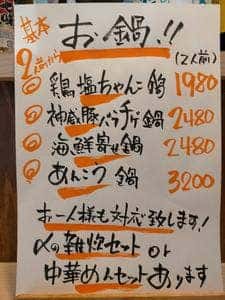 基本 お鍋!!
2人前から (2人前)
① 鶏塩ちゃんこ鍋 1980
② 神威豚バラチゲ鍋 2480
③ 海鮮寄せ鍋 2480
④ あんこう鍋 3200
お一人様も対応致します!
〆の雑炊セット or
中華めんセットあります